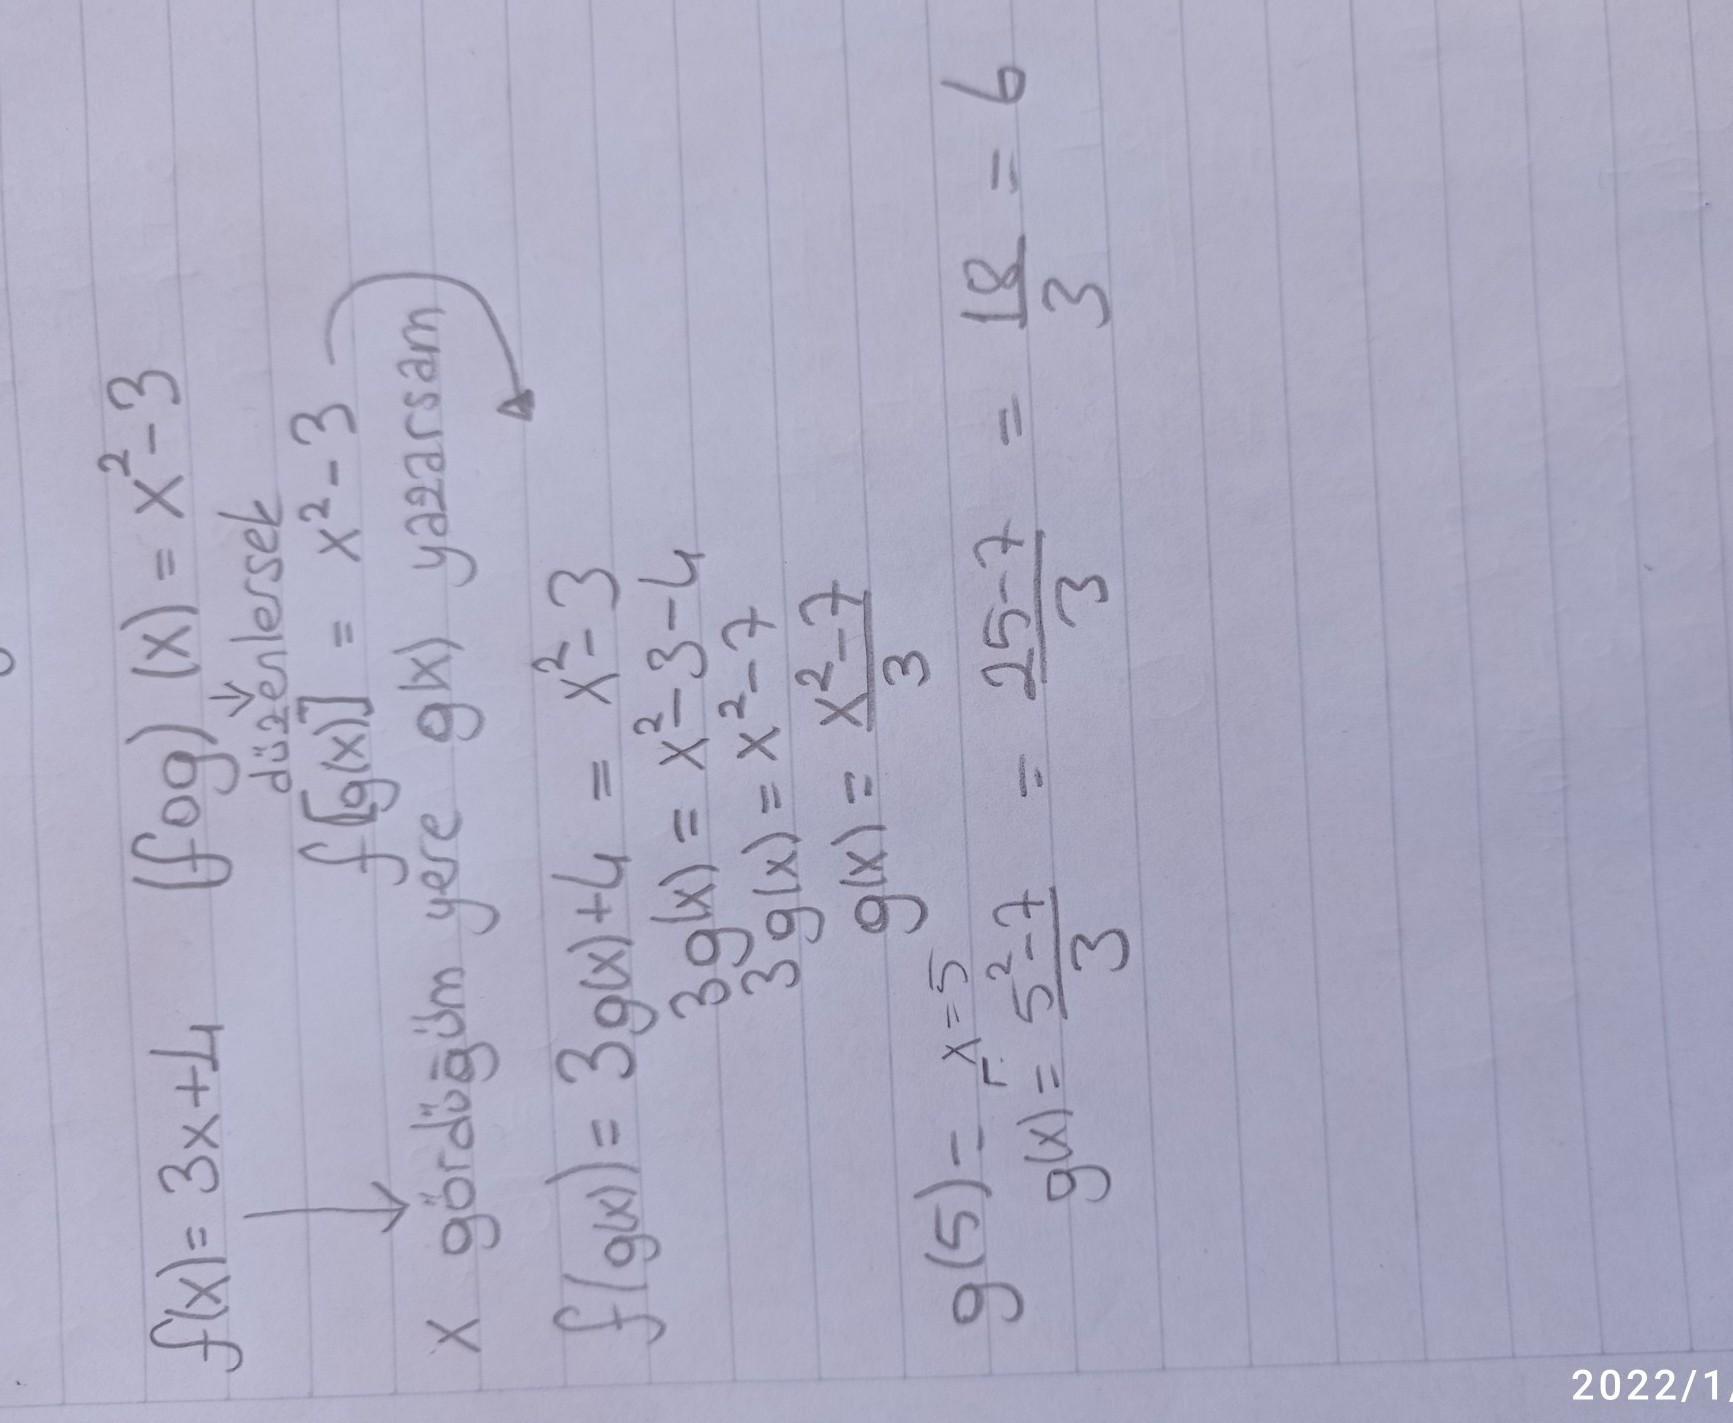 f(x) = 3x+4 (fog) (x) = x²-3
düzenlersek
f[g(x)] = x²-3
x gördüğüm yere g(x) yazarsam
f(g(x)) = 3g(x)+4 = x²-3
3g(x) = x²-3-4
3g(x) = x²-7
g(x) = x²-7/3
g(5) = x=5
g(x) = 5²-7/3 = 25-7/3 = 18/3 = 6
2022/1/